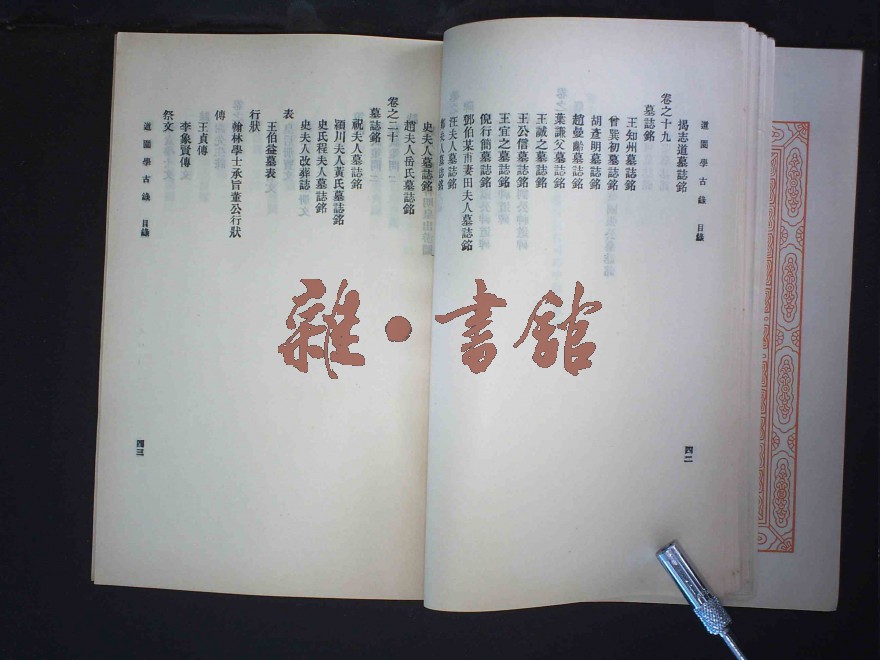 道園學古錄 目錄
揭志道墓誌銘
卷之十九
墓誌銘
王知州墓誌銘
曾巽初墓誌銘
胡彥明墓誌銘
趙曼齡墓誌銘
葉謙父墓誌銘
王誠之墓誌銘
王公信墓誌銘
王宜之墓誌銘
倪行簡墓誌銘
鄧伯某甫妻田夫人墓誌銘
汪夫人墓誌銘
夫人墓誌銘
四二
史夫人墓誌銘
趙夫人岳氏墓誌銘
卷之二十
墓誌銘
祝夫人墓誌銘
潁川夫人黃氏墓誌銘
史氏程夫人墓誌銘
史夫人改葬誌
表
王伯益墓表
行狀
翰林學士承旨董公行狀
傳
王貞傳
李象賢傳
祭文
道園學古錄 目錄
四三
雜·書館